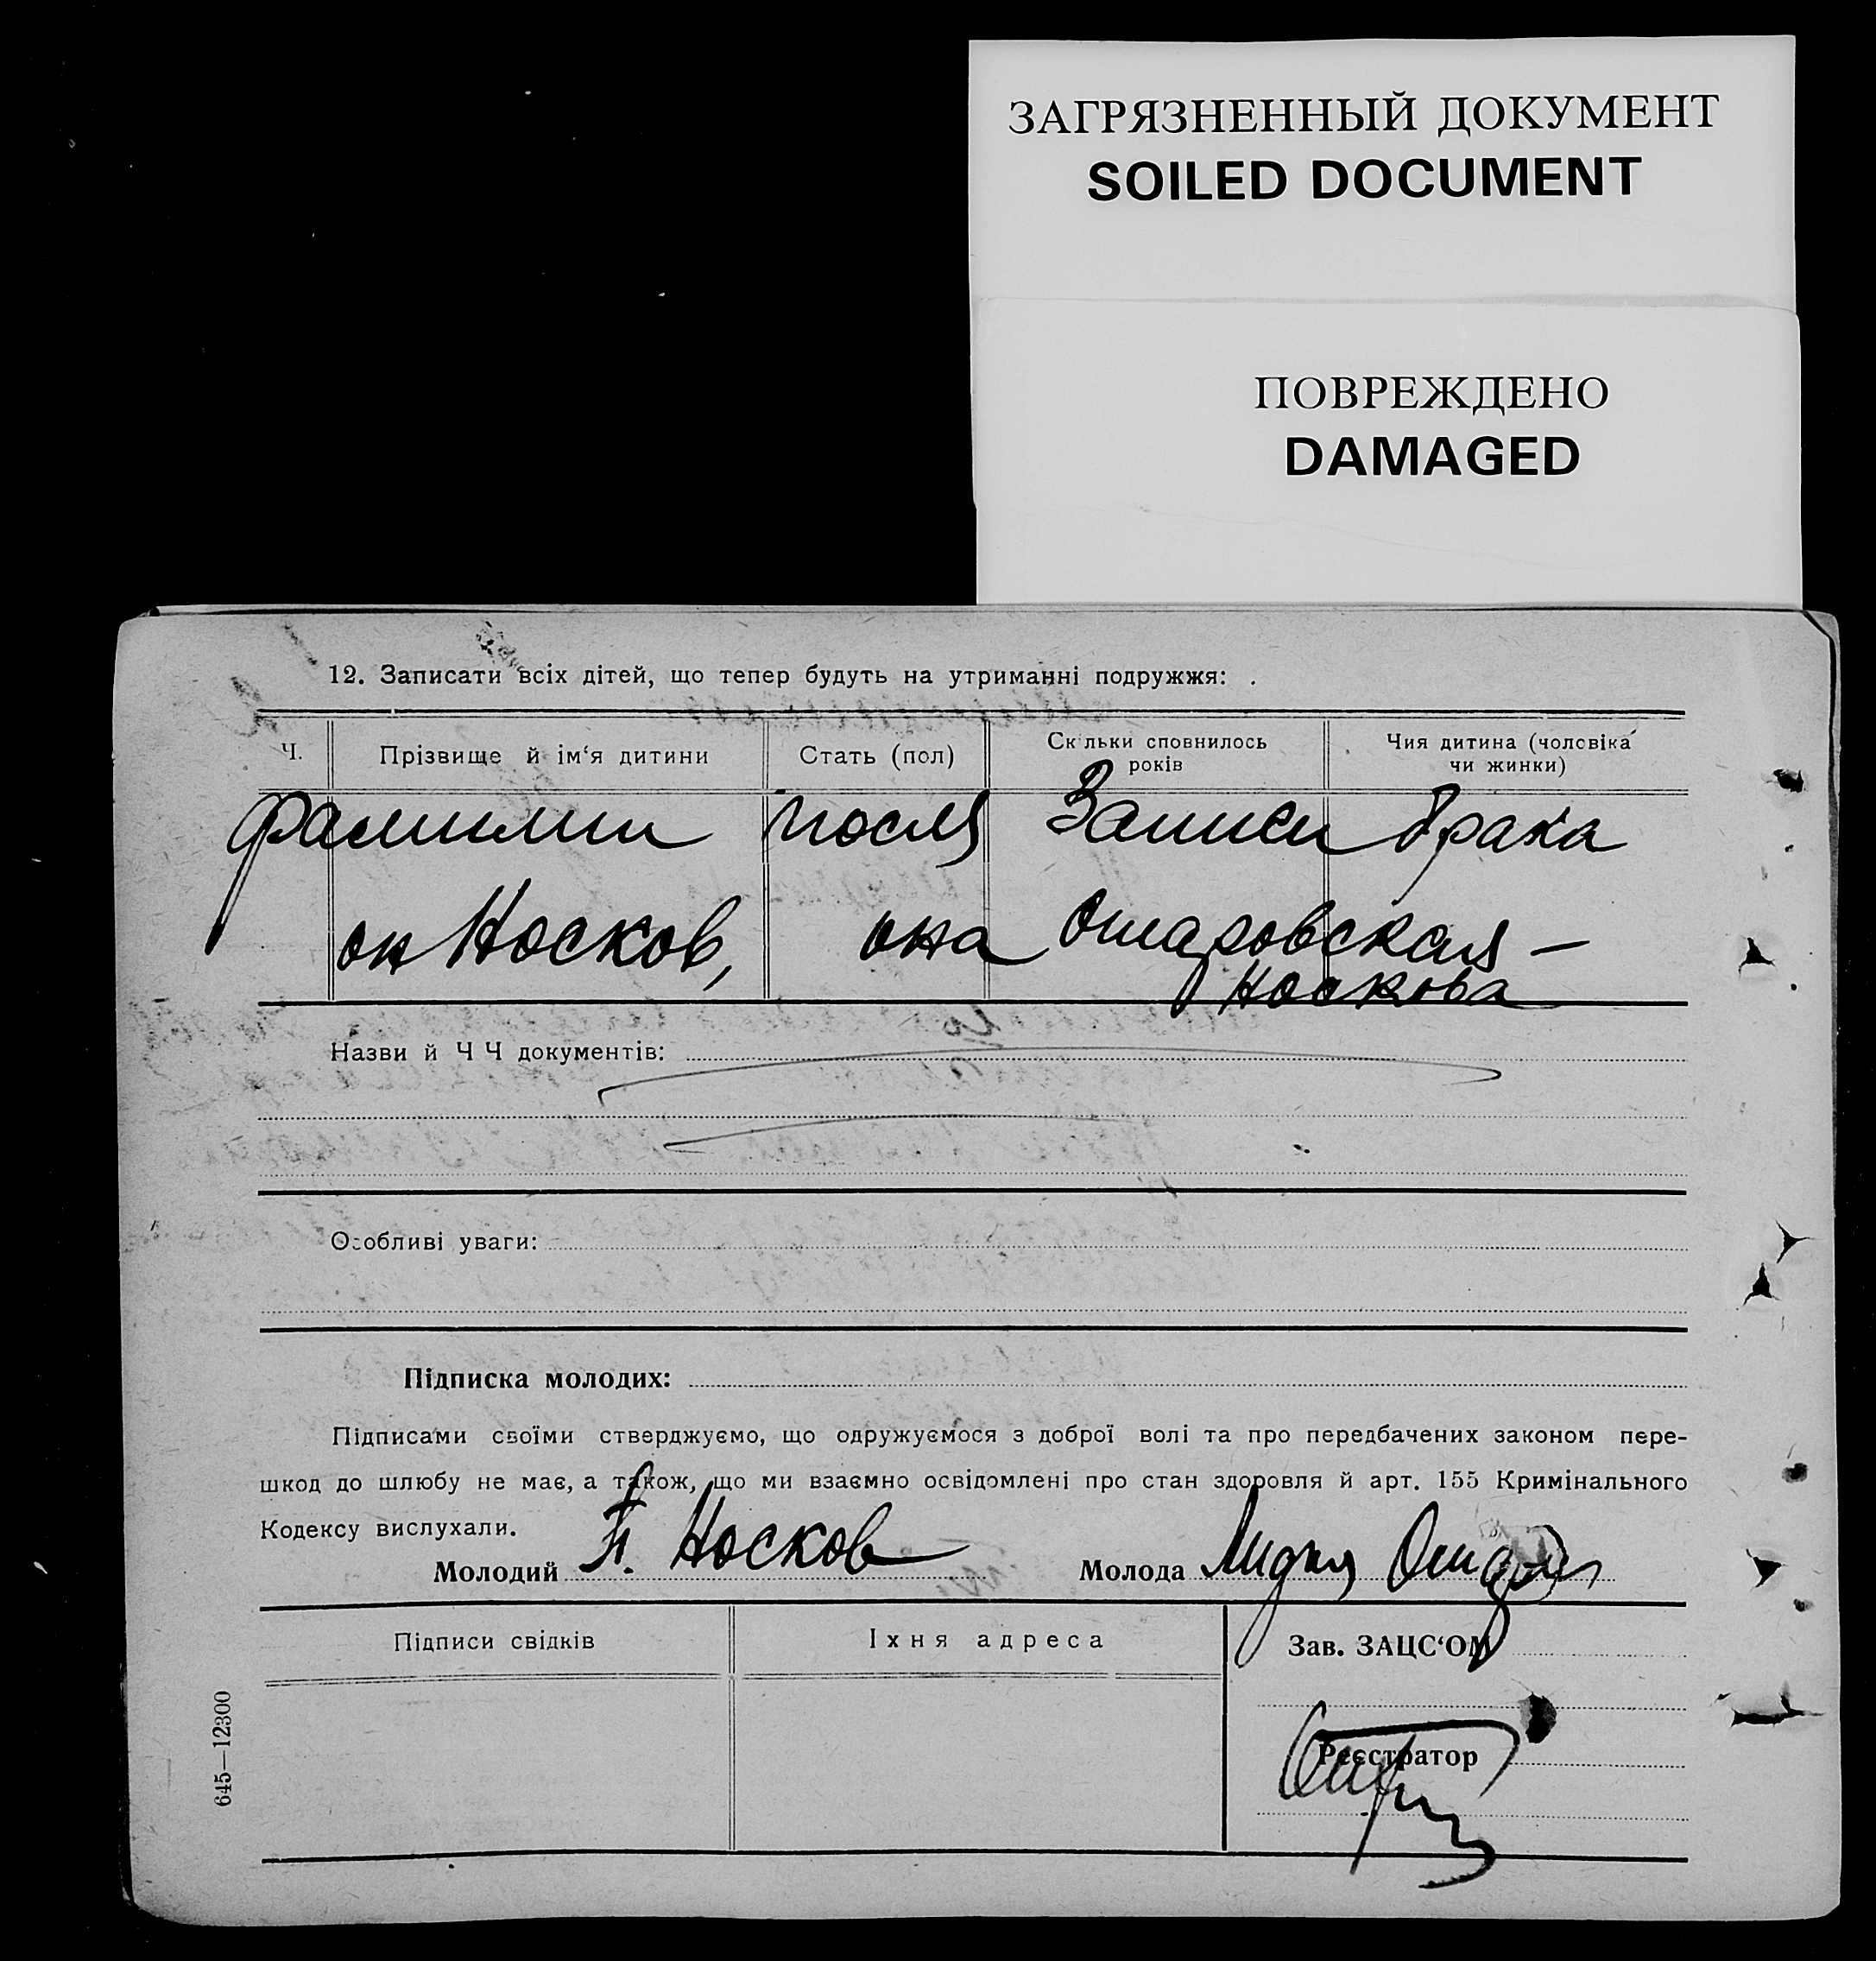 ЗАГРЯЗНЕННЫЙ ДОКУМЕНТ
SOILED DOCUMENT
ПОВРЕЖДЕНО
DAMAGED
12. Записати всіх дітей, що тепер будуть на утриманні подружжя:
Ч.
Прізвище й ім‘я дитини
Стать (пол)
Скільки сповнилось
років
Чия дитина (чоловіка
чи жинки)
фамилии после Записи брака
он Носков, она Ошаровская –
Носкова
Назви й ЧЧ документів:
Особливі уваги:
Підписка молодих:
Підписами своїми стверджуємо, що одружуємося з доброї волі та про передбачених законом пере-
шкод до шлюбу не має, а також, що ми взаємно освідомлені про стан здоровля й арт. 155 Кримінального
Кодексу вислухали.
Молодий Носков Молода Лидия
Підписи свідків
Їхня адреса
Зав. ЗАЦС‘ОМ
Реєстратор
645—12300